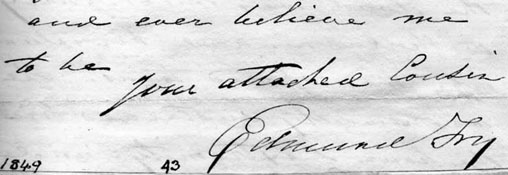 and ever believe me
to be
your attached Cousin
Edmund Fry
1849 43